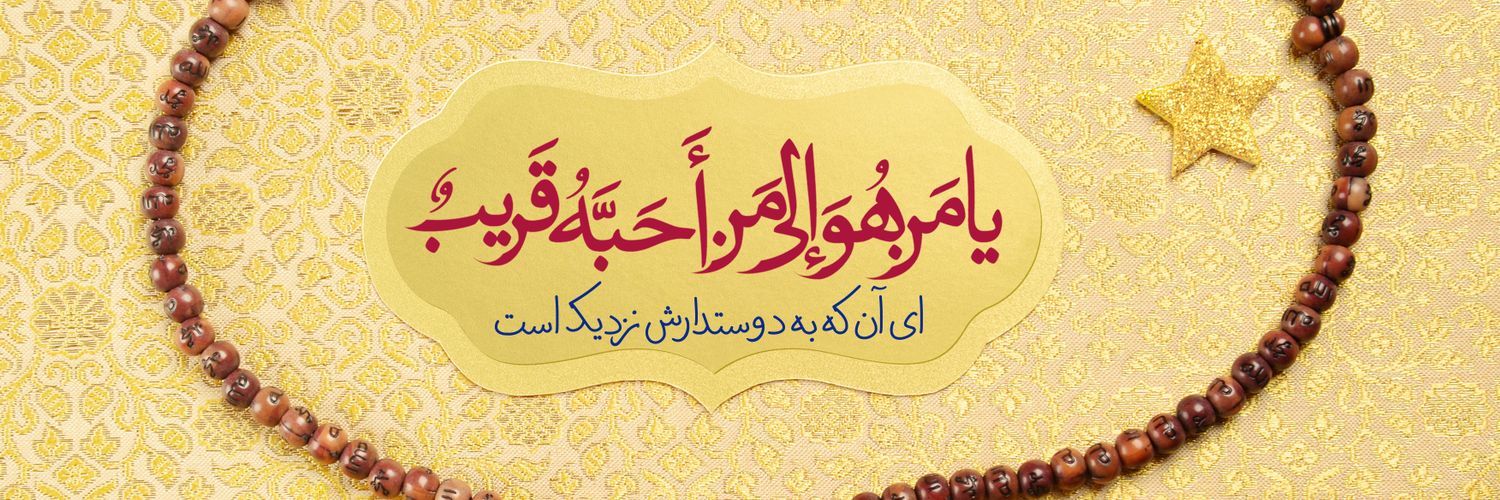 يا مَن هُوَ إلى مَن أَحَبَّهُ قَریبٌ
ای آن که به دوستدارش نزدیک است